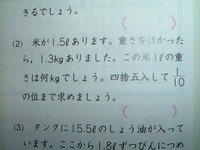 きるでしょう。
(　　　)
(2) 米が1.5ℓあります。重さをはかった
ら，1.3kgありました。この米1ℓの重
さは何kgでしょう。四捨五入して1/10
の位まで求めましょう。
(　　　)
(3) タンクに15.5ℓのしょう油が入って
います。ここから1.8ℓずつびんにつめ